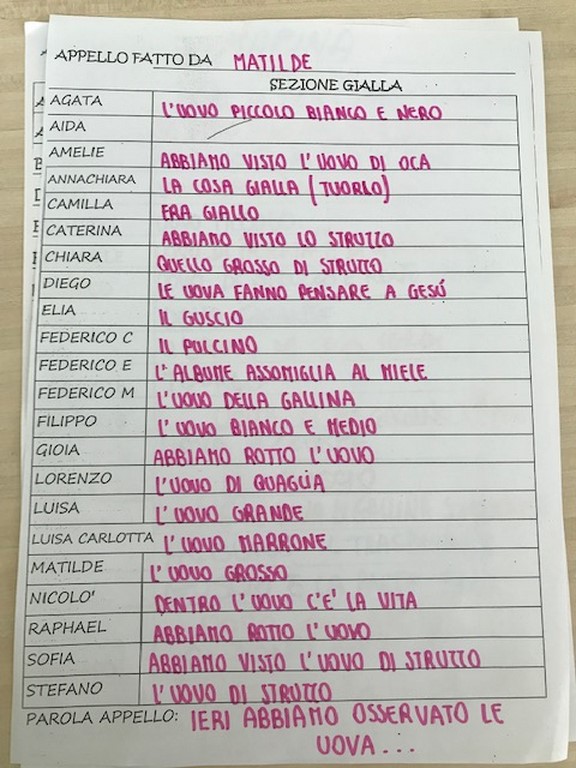 APPELLO FATTO DA MATILDE
SEZIONE GIALLA
AGATA L'UOVO PICCOLO BIANCO E NERO
AIDA
AMELIE ABBIAMO VISTO L'UOVO DI OCA
ANNACHIARA LA COSA GIALLA (TUORLO)
CAMILLA ERA GIALLO
CATERINA ABBIAMO VISTO LO STRUZZO
CHIARA QUELLO GROSSO DI STRUZZO
DIEGO LE UOVA FANNO PENSARE A GESÚ
ELIA IL GUSCIO
FEDERICO C IL PULCINO
FEDERICO E L'ALBUME ASSOMIGLIA AL MIELE
FEDERICO M L'UOVO DELLA GALLINA
FILIPPO L'UOVO BIANCO E MEDIO
GIOIA ABBIAMO ROTTO L'UOVO
LORENZO L'UOVO DI QUAGLIA
LUISA L'UOVO GRANDE
LUISA CARLOTTA L'UOVO MARRONE
MATILDE L'UOVO GROSSO
NICOLO' DENTRO L'UOVO C'E' LA VITA
RAPHAEL ABBIAMO ROTTO L'UOVO
SOFIA ABBIAMO VISTO L'UOVO DI STRUZZO
STEFANO L'UOVO DI STRUZZO
PAROLA APPELLO: IERI ABBIAMO OSSERVATO LE
UOVA...